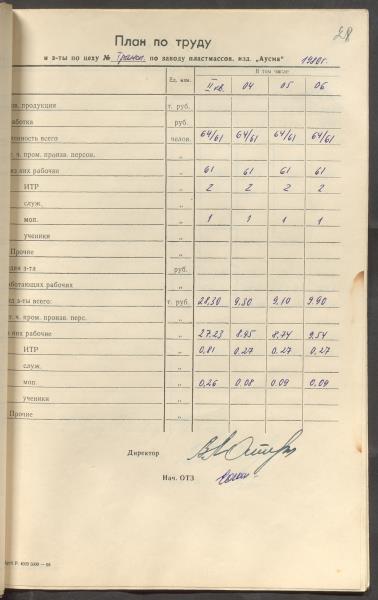 28
План по труду
и з-ты по цеху № Трансп. по заводу пластмассов. изд. „Аусма“ 1980г.
Ед. изм. В том числе:
II кв. 04 05 06
продукция т. руб.
руб.
всего челов. 64/61 64/61 64/61 64/61
т. ч. пром. произв. персон. „
из них рабочие „ 61 61 61 61
ИТР „ 2 2 2 2
служ. „
моп. „ 1 1 1 1
ученики „
Прочие „
з-та руб.
рабочих „
з-ты всего: т. руб. 28,30 9,30 9,10 9,90
т. ч. кром. произв. перс. „
них рабочие „ 27.23 8.95 8,74 9,54
ИТР „ 0,81 0,27 0,27 0,27
служ. „
моп. „ 0,26 0,08 0,09 0,09
ученики „
Прочие „
Директор
Нач. ОТЗ